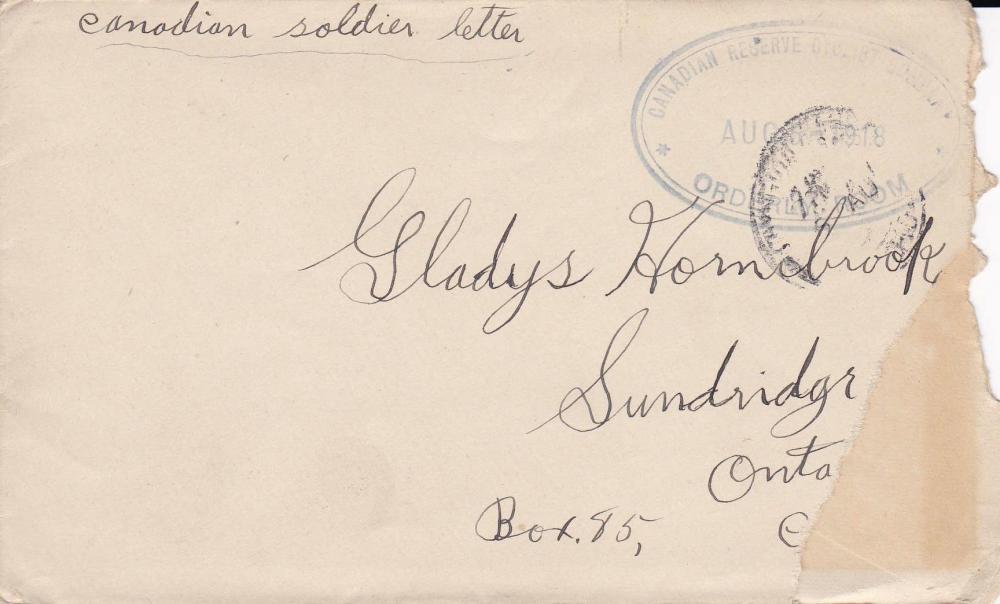 canadian soldier letter
CANADIAN RESERVE CYCLIST
AUG 1918
ORDERLY ROOM
Gladys Hornibrook
Sundridge
Onta
Box. 85, C